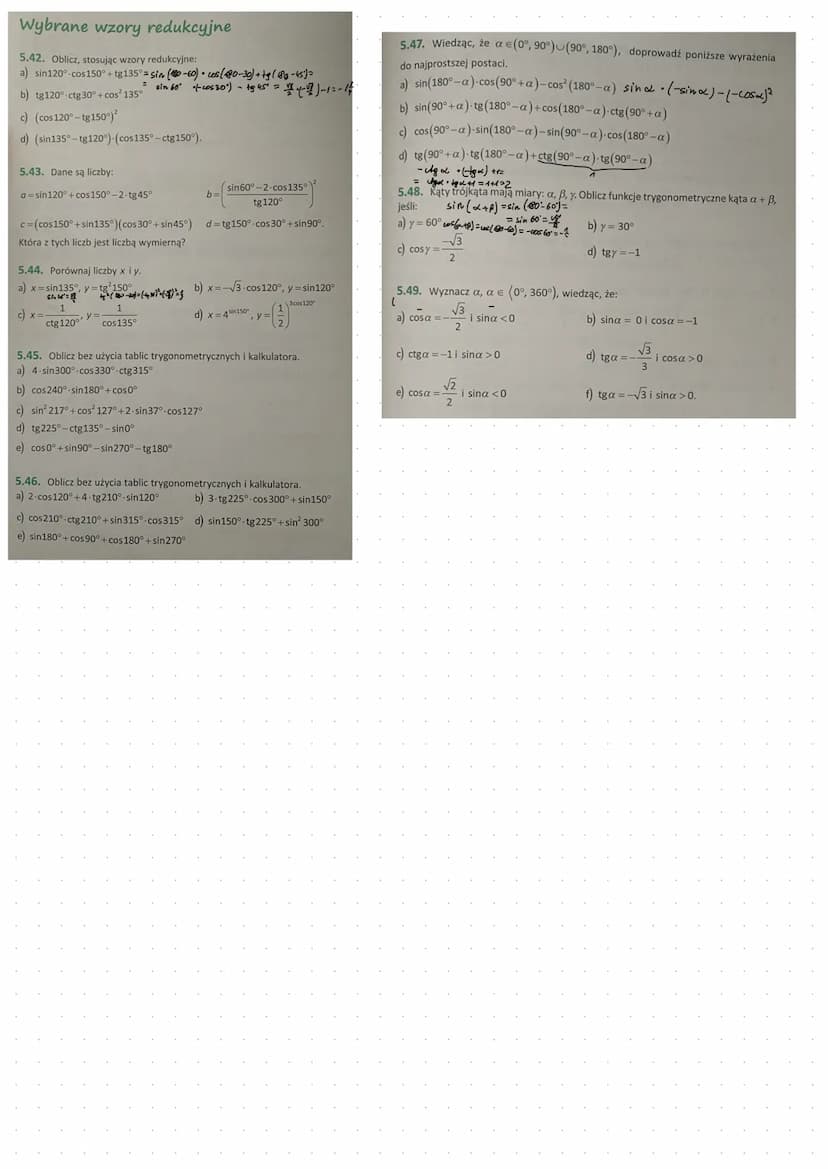 Wybrane wzory redukcyjne
5.42. Oblicz, stosując wzory redukcyjne:
a) sin120°·cos150° + tg135° = sin (180-60) · cos(180-30) + tg(180-45) =
= sin 60° · (-cos30°) - tg 45° = √3/2 · (-√3/2) - 1 =
b) tg120°·ctg30° + cos²135°
c) (cos120° − tg150°)²
d) (sin135° − tg120°)·(cos135° − ctg150°).
5.43. Dane są liczby:
a = sin120° + cos150° − 2·tg45° b = ((sin60° − 2·cos135°)/tg120°)²
c = (cos150° + sin135°)(cos30° + sin45°) d = tg150°·cos30° + sin90°.
Która z tych liczb jest liczbą wymierną?
5.44. Porównaj liczby x i y.
a) x = sin135°, y = tg²150° b) x = −√3·cos120°, y = sin120°
c) x = 1/ctg120°, y = 1/cos135° d) x = 4^sin150°, y = (1/2)^3cos120°
5.45. Oblicz bez użycia tablic trygonometrycznych i kalkulatora.
a) 4·sin300°·cos330°·ctg315°
b) cos240°·sin180° + cos0°
c) sin²217° + cos²127° + 2·sin37°·cos127°
d) tg225° − ctg135° − sin0°
e) cos0° + sin90° − sin270° − tg180°
5.46. Oblicz bez użycia tablic trygonometrycznych i kalkulatora.
a) 2·cos120° + 4·tg210°·sin120° b) 3·tg225°·cos300° + sin150°
c) cos210°·ctg210° + sin315°·cos315° d) sin150°·tg225° + sin²300°
e) sin180° + cos90° + cos180° + sin270°
5.47. Wiedząc, że α ∈ (0°, 90°) ∪ (90°, 180°), doprowadź poniższe wyrażenia
do najprostszej postaci.
a) sin(180° − α)·cos(90° + α) − cos²(180° − α) sinα · (-sinα) - (-cosα)²
b) sin(90° + α)·tg(180° − α) + cos(180° − α)·ctg(90° + α)
c) cos(90° − α)·sin(180° − α) − sin(90° − α)·cos(180° − α)
d) tg(90° + α)·tg(180° − α) + ctg(90° − α)·tg(90° − α)
1
-ctgα · (-tgα) +1=
= ctgα · tgα +1 = 1+1=2
5.48. Kąty trójkąta mają miary: α, β, γ. Oblicz funkcje trygonometryczne kąta α + β,
jeśli: sin(α+β) = sin (180°-60°) =
= sin 60° = √3/2
a) γ = 60° cos(α+β)=cos(180-60) = -cos60°=-1/2 b) γ = 30°
c) cosγ = −√3/2 d) tgγ = −1
5.49. Wyznacz α, α ∈ ⟨0°, 360°), wiedząc, że:
a) cosα = −√3/2 i sinα < 0 b) sinα = 0 i cosα = −1
c) ctgα = −1 i sinα > 0 d) tgα = −√3/3 i cosα > 0
e) cosα = √2/2 i sinα < 0 f) tgα = −√3 i sinα > 0.